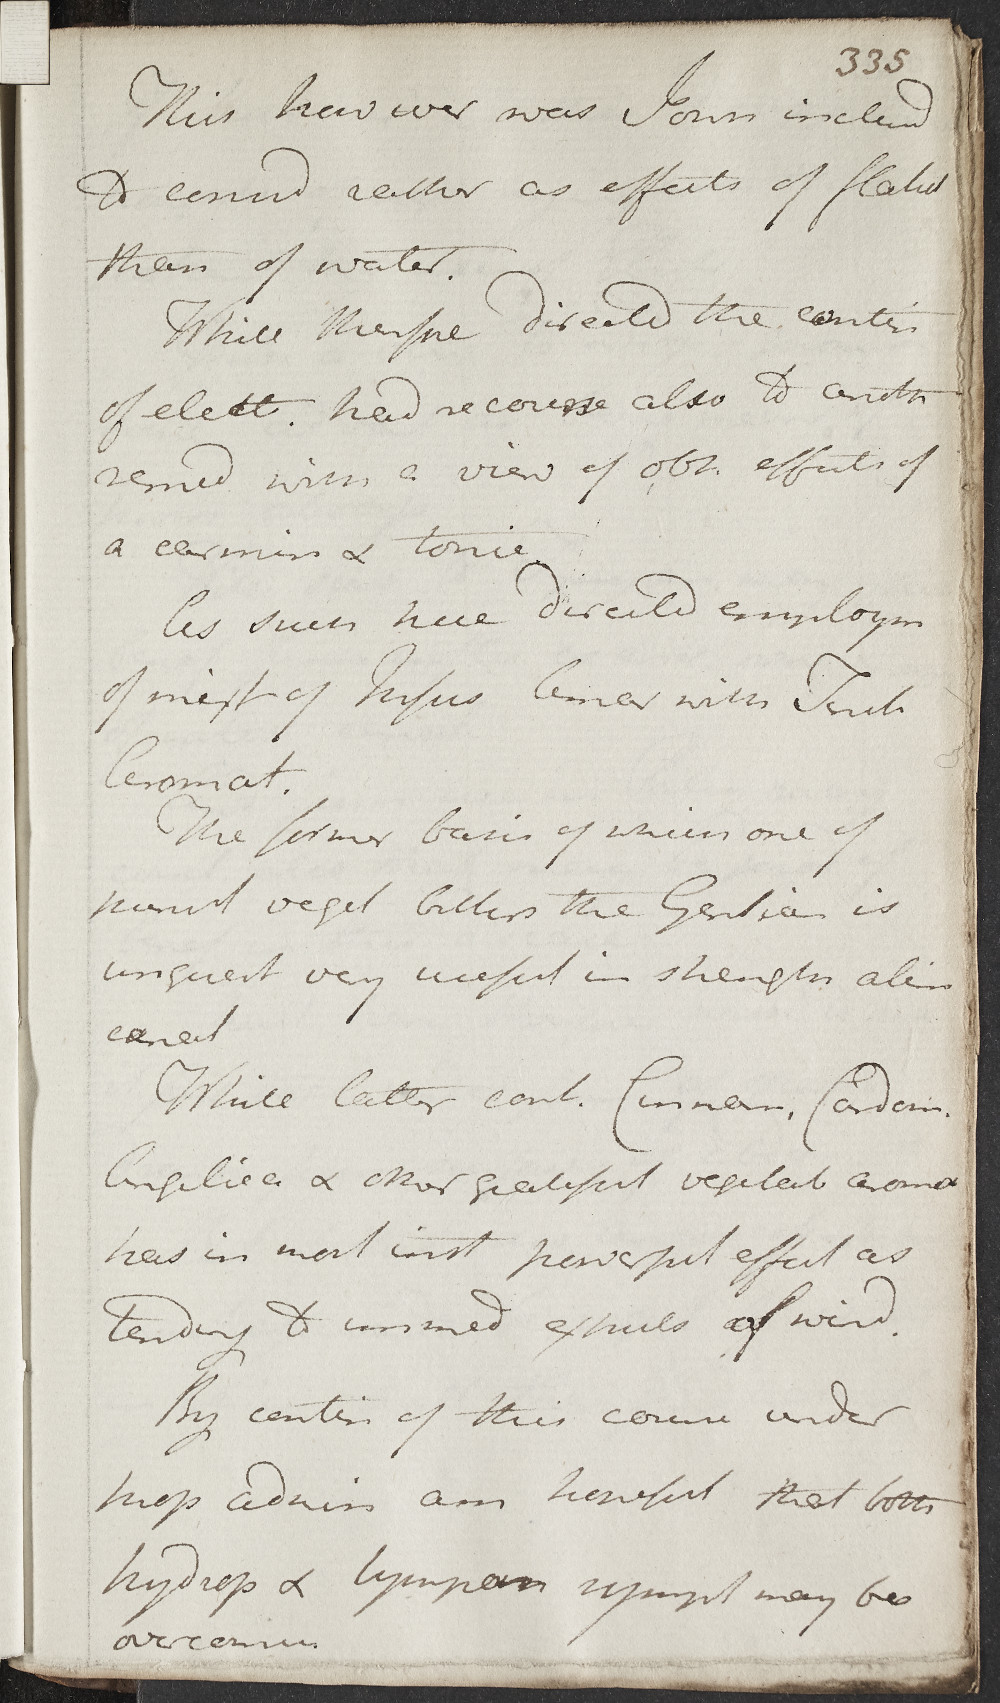 335
This however was I own inclind
to consid rather as effects of flatul
than of water.
While therefore directed the contin
of elect. had recourse also to anoth
remed with a view of obt. effects of
a carmin & tonic.
As such have directed employm
of mixt of Infus Amar with Tinct
Aromat.
The former basis of which one of
purest veget bitters the Gentian is
unquest very useful in strength alim
canal
While latter cont. Cinnam, Cardam.
Angelica & other grateful vegetab aromat
has in most inst powerful effect as
tending to immed expuls of wind.
By contin of this course under
prop admin am hopeful that both
hydrop & tympan sympt may be
overcome